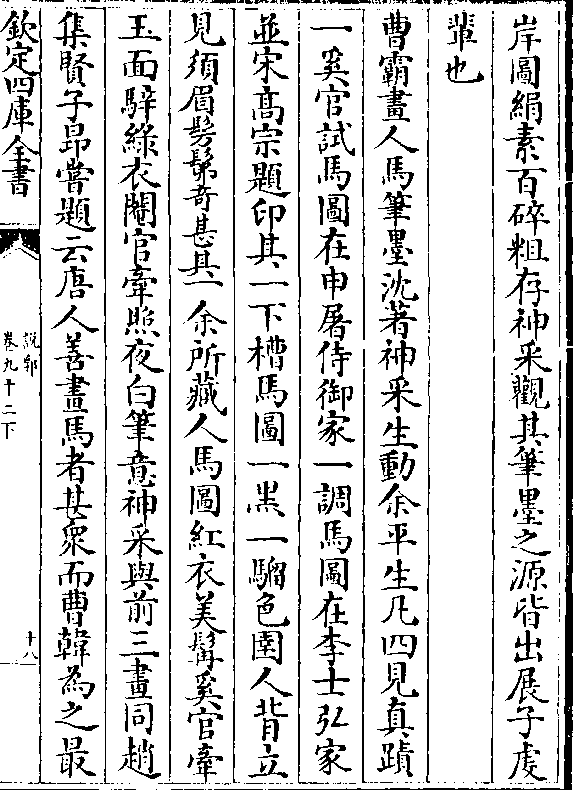 岸圖絹素百碎粗存神采觀其筆墨之源皆出展子虔
輩也
曹霸畫人馬筆墨沈著神采生動余平生凡四見真蹟
一奚官試馬圖在申屠侍御家一調馬圖在李士弘家
並宋髙宗題印其一下槽馬圖一黒一騮色圉人背立
見須眉髣髴奇甚其一余所藏人馬圖紅衣美髯奚官牽
玉面騂綠衣閹官牽照夜白筆意神采與前三畫同趙
集賢子昂嘗題云唐人善畫馬者甚衆而曹韓為之最
欽定四庫全書
説郛
卷九十二下
十八